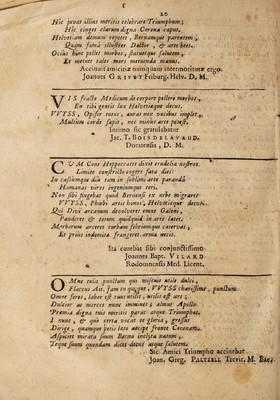 20
Hic juvat illius meritis celebrare Triumphum;
Hic cinget clarum digna Corona caput,
Helvetiam demum repetet, Bernamque parentem,
Quam famâ illustret Doctor, & arte beet.
Ocius hinc pellet morbos, fugietque salutem,
Et metuet tales mors metuenda manus.
Accinuit amicitiæ nunquam intermorituræ ergo
Joannes GRIVET Friburg. Helv. D. M.
VIS fracto Medicum de corpore pellere morbos,
En tibi gentis lux Helvetiæque decus.
VVYSS, Opifer totus, auras non vocibus implet,
Multùm corde sapit, nec minùs arte potest.
Intimo sic gratulabatur
Jac. T. BOISDELAVAUD.
Doratensis, D. M.
CUM Cons Hyppocrates dixit crudelia nostros
Limite constricto rogere fata dies:
In castissima diu tam in sublimi arte parandâ
Humanas vires ingeniumque teri.
Non sibi fingebat quod Bernensi ex orbe migraret
VVYSS, Phœbi artis honos, Helvetiæque decus.
Qui Divi arcanum devolveret omne Galeni,
Panderet & totum quidquid in arte latet.
Morborum arceret turbam febriumque catervas,
Et priùs indomita frangeret arma necis.
Ita canebat sibi conjunctissimo
Joannes Bapt. VILARD
Rodomnensis Med. Licent.
OMne tulit punctum qui miscuit utile dulci,
Flaccus ait. Jam tu quoque, VVYSS charissime, punctum
Omne feres, labor est tuus utilis, utilis est ars;
Dulcior ac mores nunc imminet; almus Apollo
Præmia digna tuis meritis parat: atque Triumphi.
I nunc, & quò certa vocat te gloria, gressus
Dirige, quamque petis læto accipe fronte Coronam.
Aspiciet mirata suum Berna inclyta natum,
Teque suum quondam dicet decus atque salutem.
Sic Amici Triumpho accinebat
Joan. Greg. PALTZELL Trevir. M. Bac.